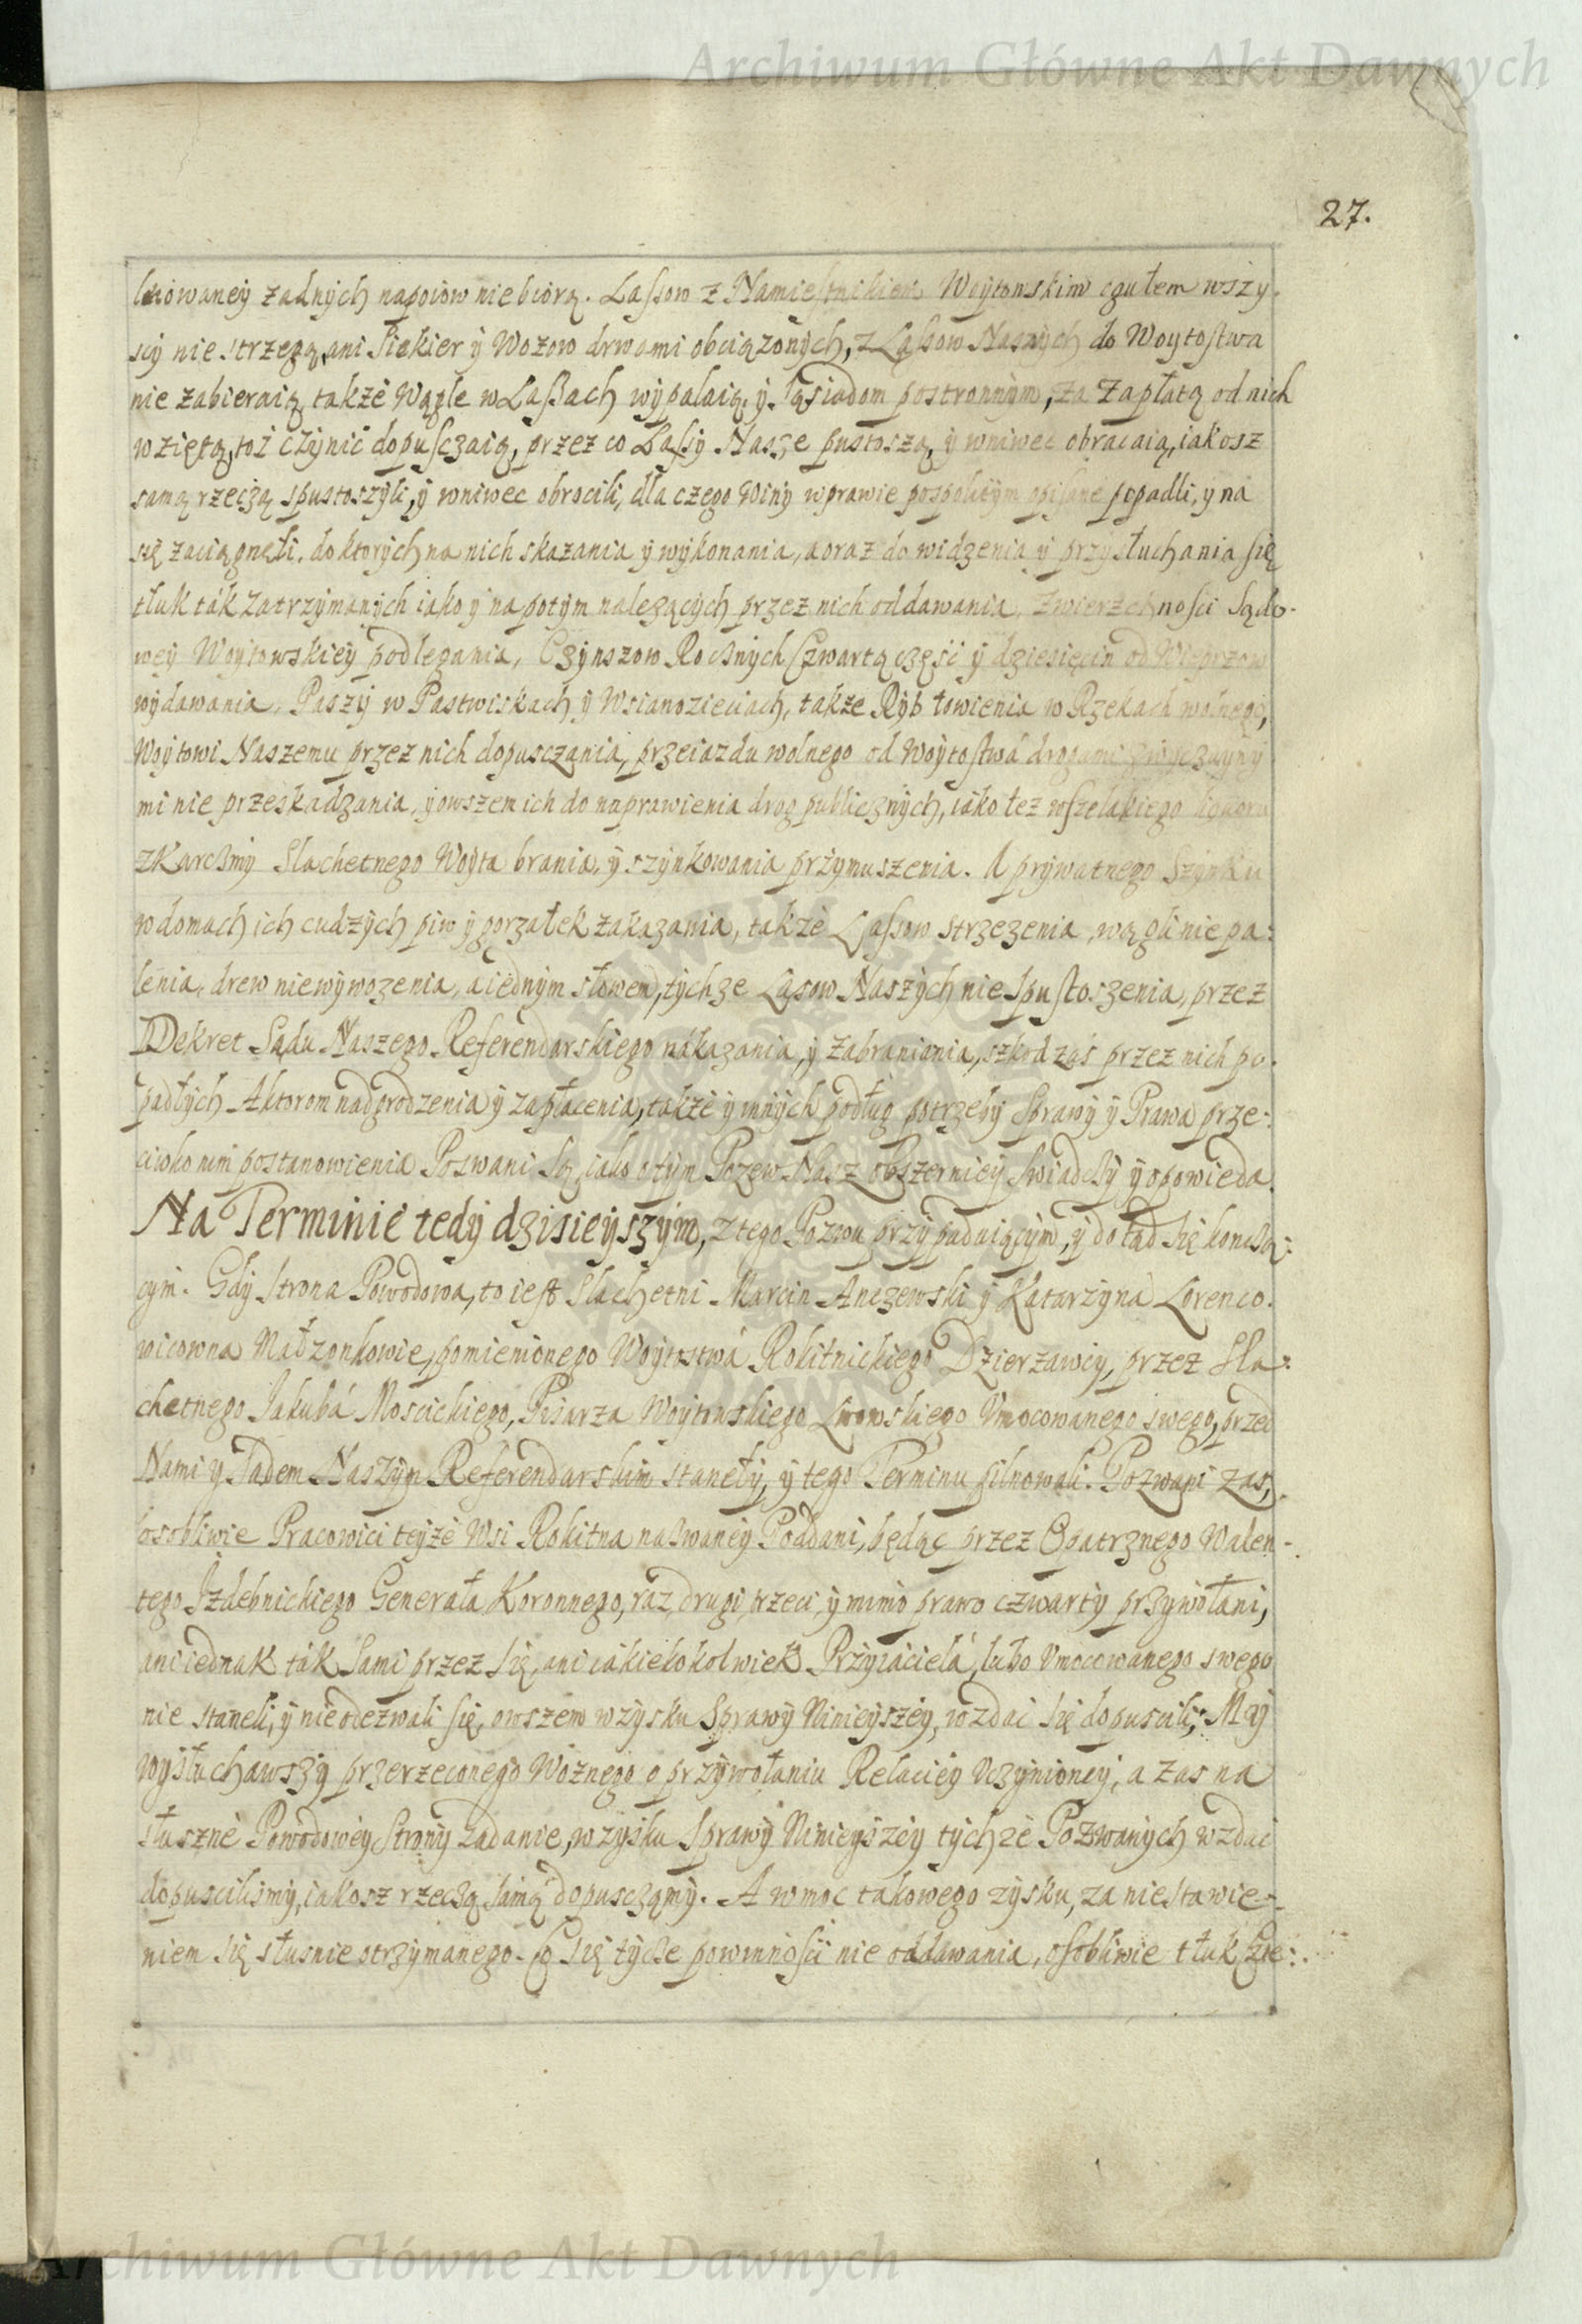 Archiwum Główne Akt Dawnych
27.
żadnych napoiow nie biorą. Lassow z Namiestnikiem Woytowskim ogułem wszy-
scy nie strzegą, ani Siekier y Wozow drwami obciązonych, z Lassow Naszych do Woytostwa
nie zabieraią, także Węgle w Lassach wypalaią, y Sąsiadom postronnym, za zapłatą od nich
wziętą, toż czynić dopusczaią, przez co Lassy Nasze pustoszą, y wniwec obracaią, iakosz
samą rzeczą spustoszyli, y wniwec obrocili, dla czego Winy w prawie pospolitym opisane popadli, y na
się zaciągnęli, do ktorych na nich skazania y wykonania, a oraz do widzenia y przysłuchania się
tłuk ták zatrzymanych iako y na potym nalezących przez nich oddawania, Zwierzchnosci Sądo-
wey Woytowskiey podlegania, Czynszow Rocznych Czwartą część y dziesięcin od Wieprzow
wydawania, Paszy w Pastwiskach y Wsianozieciach, także Ryb łowienia w Rzekach wolnego,
Woytowi Naszemu przez nich dopusczania, przeiazdu wolnego od Woytostwá drogami zwyczayny
mi nie przeskadzania, y owszem ich do naprawienia drog publicznych, iáko też wszelakiego likworu
z Karczmy Slachetnego Woyta brania, y szynkowania przymuszenia. A prywatnego Szynku
w domach ich cudzych piw y gorzałek zakazania, także Lassow strzezenia, węgli nie pa:
lenia, drew niewywozenia, a iednym słowem, tychze Lasow Naszych nie spustoszenia, przez
Dekret Sądu Naszego Referendarskiego nákazania, y zabraniania, szkod zaś przez nich po-
padłych Aktorom nadgrodzenia y zapłacenia, także y innych podług potrzeby Sprawy y Prawa prze:
ciwko nim postanowienia Pozwani Są, iako o tym Pozew Nasz obszerniey swiadczy y opowieda.
Na Terminie tedy dzisieyszym, z tego Pozwu przypadaiącym, y do tąd się konczą:
cym. Gdy strona Powodowa, to iest Slachetni Marcin Anczewski y Katarzyna Lorenco-
wicowna Małzonkowie, pomienionego Woytostwá Rokitnickiego Dzierzawcy, przez Sla:
chetnego Jakubá Moscickiego, Pisarza Woytowskiego Lwowskiego Vmocowanego swego, przed
Nami y Sądem Naszym Referendarskim stanęły, y tego Terminu pilnowali. Pozwani zas,
osobliwie Pracowici teyże Wsi Rokitna nazwaney Poddani, będąc przez Opatrznego Walen-
tego Izdebnickiego Generała Koronnego, raz, drugi, trzeci, y mimo prawo czwarty przywołani,
ani iednak ták sami przez się, ani iakieko kolwiek Przyiacielá, lubo Vmocowanego swego
nie staneli, y nie odezwali się, owszem w zysku Sprawy Ninieyszey, wzdać się dopuscili; My
wysłuchawszy przerzeconego Wożnego o przywołaniu Relaciey Vczynioney, a zas na
słuszne Powodowey Strony żadanie, w zysku Sprawy Ninieyszey tychże Pozwanych wzdać
dopuscilismy, iakosz rzeczą samą dopusczamy. A w moc takowego zysku, za niestawie-
niem się słusnie otrzymanego. Co się tycze powinnosci nie oddawania, osobliwie tłuk
Archiwum Główne Akt Dawnych